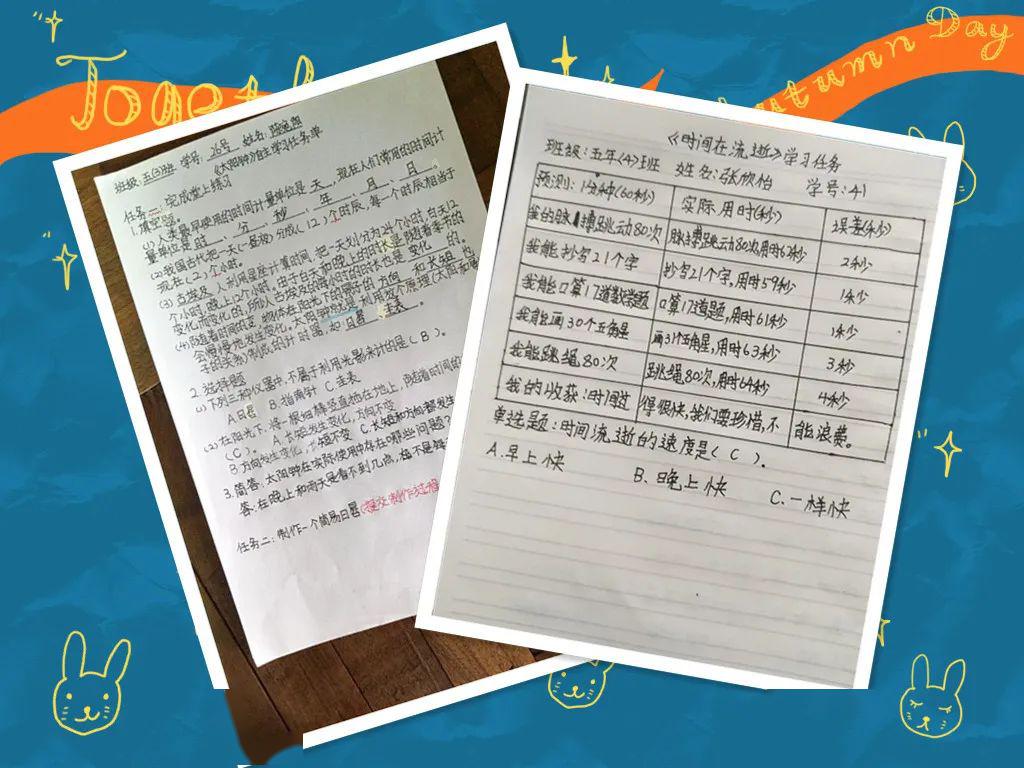 Toget
Autumn Day
班级:五(3)班 学号:26号 姓名:
《太阳钟》自主学习任务单
任务一:完成堂上练习
1.填空题
(1)人类最早使用的时间计量单位是 天,现在人们常用的时间计
量单位是 时、 分、 秒、 年、 月、 日。
(2)我国古代把一天(一昼夜)分成(12)个时辰,每一个时辰相当于
现在(2)个小时。
(3)古埃及 人利用星座计算时间,把一天划分为24个小时,白天12
个小时,晚上12个小时。由于白天和晚上的时长是随着季节的
变化而变化的,所以古埃及的每小时的时长也是 变化 的。
(4)随着时间的 物体在阳光下的影子的 方向 和 长短 也
会慢慢地发生变化。太阳钟 利用这个原理(太阳和
子的关系)制成的计时器,如 日晷、 圭表。
2.选择题
(1)下列三种仪器中,不属于利用光影来计的是(B)。
A.日晷 B.指南针 C.圭表
(2)在阳光下,将一根细棒竖直插在地上,随着时间的
(C)。 A.长短发生变化,方向不变
B.方向发生变化,长短不变 C.长短和方向都发生
3.简答:太阳钟在实际使用中存在哪些问题?
答:在晚上和雨天是看不到几点,
任务二:制作一个简易日晷(提交制作过程
《时间在流逝》学习任务
班级:五年(4)班 姓名:张欣怡 学号:41
预测:1分钟(60秒) 实际用时(秒) 误差(秒)
我的脉搏跳动80次 脉搏跳动80次用时62秒 2秒
我能抄写21个字 抄写21个字,用时59秒 1秒
我能口算17道数学题 口算17道题,用时61秒 1秒
我能画30个五角星 画31个五角星,用时63秒 3秒
我能跳绳80次 跳绳80次,用时64秒 4秒
我的收获:时间过得很快,我们要珍惜,不能浪费。
单选题:时间流逝的速度是(C)。
A.早上快 B.晚上快 C.一样快